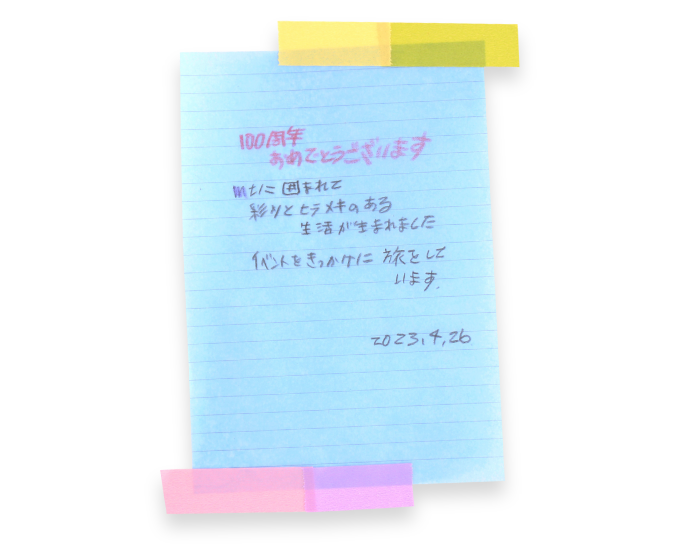 100周年
おめでとうございます
mtに囲まれて
彩りとヒラメキのある
生活が生まれました
イベントをきっかけに 旅をして
います.
2023.4.26